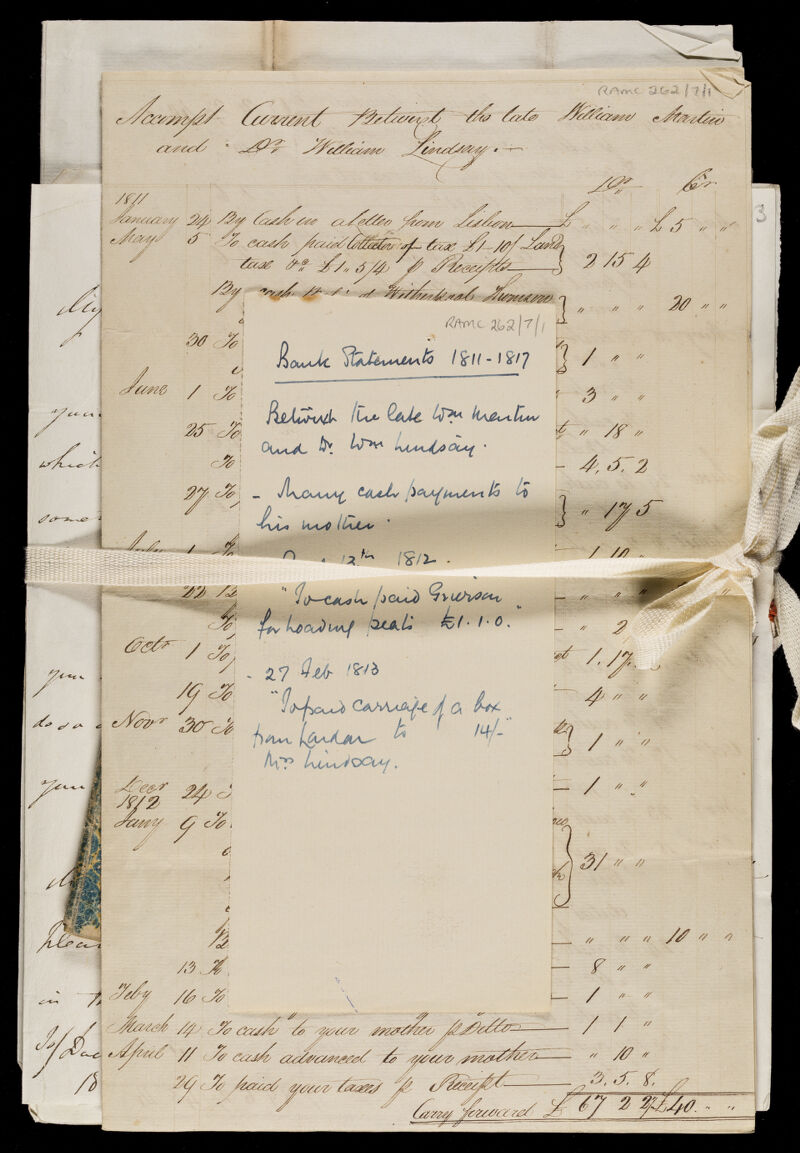 RAMC 262/7/1
Accompt Current Betwixt the late William Martin
and Dr William Lindsay.
Dr Cr
1811
January 24 By Cash in a letter from Lisbon £ " " " £ 5 " "
May 5 To cash paid of tax £1-10/ Land
tax &c £1" 5/4 p Receipts 2 15 4
By Thomson " " " 20 " "
30 To 1 " "
June 1 To 3 " "
25 To " 18 "
To 4. 5. 2
27 To " 17 5
1 To 1 10
22
To " 2
Octr 1 To 1. 17
19 To 4 " "
Novr 30 To 1 " "
Decr 24 1 " "
1812
Jany 9 To 31 " "
" " " 10 " "
13 To 8 " "
Feby 16 To 1 " "
March 14 To cash to your mother p Ditto 1 1 "
April 11 To cash advanced to your mother " 10 "
29 To paid your taxes p Receipt 3. 5. 8.
Carry forward £ 67 2 £40. " "
RAMC 262/7/1
Bank Statements 1811-1817
Betwixt the late Wm Martin
and Dr. Wm Lindsay.
- Many cash payments to
his mother.
13th 1812.
"To cash paid Grierson
for loading peats £1.1.0."
- 27 Feb 1813
"To paid carriage of a box
from London to 14/-"
Mrs Lindsay.
3
your
which
some
you
do so
your
in
18